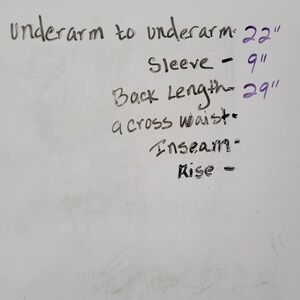 underarm to underarm- 22"
Sleeve - 9"
Back Length- 29"
across waist-
Inseam-
Rise -